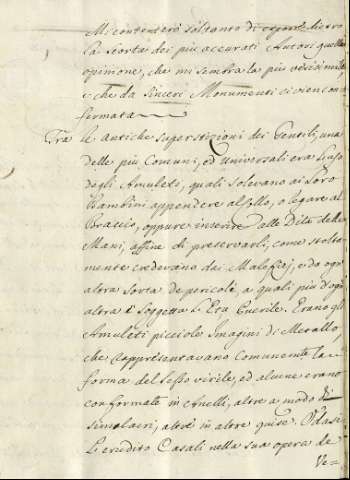 Mi contenterò soltanto di esporre dietro
la scorta dei più accurati Autori quella
opinione, che mi sembra la più verisimile
e che da sinceri Monumenti ci vien con
fermata
Tra le antiche superstizioni dei Gentili, una
delle più Comuni, ed Universali era l'uso
degli Amuleti, quali solevano ai loro
Bambini appendere al Collo, o legare al
Braccio, oppure inserire alle Dita delle
Mani, affine di preservarli, come stolta
mente credevano dai Maleficj, e da ogn'
altra sorta de pericoli, a quali più d'ogn'
altra è soggetta l'Età Puerile. Erano gli
Amuleti picciole Imagini di Metallo,
che rappresentavano Comunemente la
forma del Sesso virile, ed alcune erano
conformate in Anelli, altre a modo di
Simolacri, altre in altre guise. Odasi
l'erudito Casali nella sua opera de
Ve=